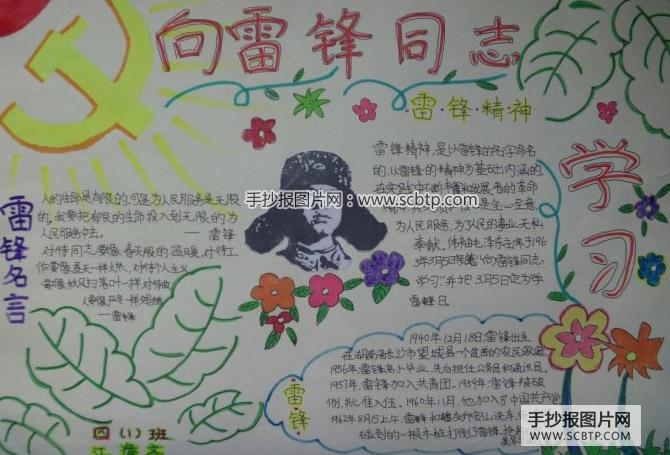 向雷锋同志
学习
雷·锋·精·神
雷锋精神,是以雷锋的名字命名
的,以雷锋的精神为基础内涵的
在实践中不断丰富和发展着的革命
为人民服务,为了人民的事业无私
奉献。伟大领袖毛泽东主席于196
3年3月5日 "向雷锋同志
学习"并把3月5日定为学
雷锋日。
手抄报图片网
www.scbtp.com
雷锋名言
人的生命是有限的,可是为人民服务是无限
的,我要把有限的生命投入到无限的为
人民服务中去。
— 雷锋
对待同志要像春天般的温暖,对待工
作要像夏天一样火热,对待个人主义
要像秋风扫落叶一样,对待敌
人要像严冬一样
—雷锋
雷·锋
1940年12月18日,雷锋出生
在湖南省长沙市望城县一个贫苦的农民家庭
1956年,雷锋高小毕业,先后担任公务员和通讯员,
1957年,雷锋加入共青团。1959年,雷锋被破
例批准入伍。1960年11月,他加入了中国共产党
1962年8月15日上午,雷锋和
碰到的一根木桩打倒了雷锋,
四(1)班
手抄报图片网
WWW.SCBTP.COM